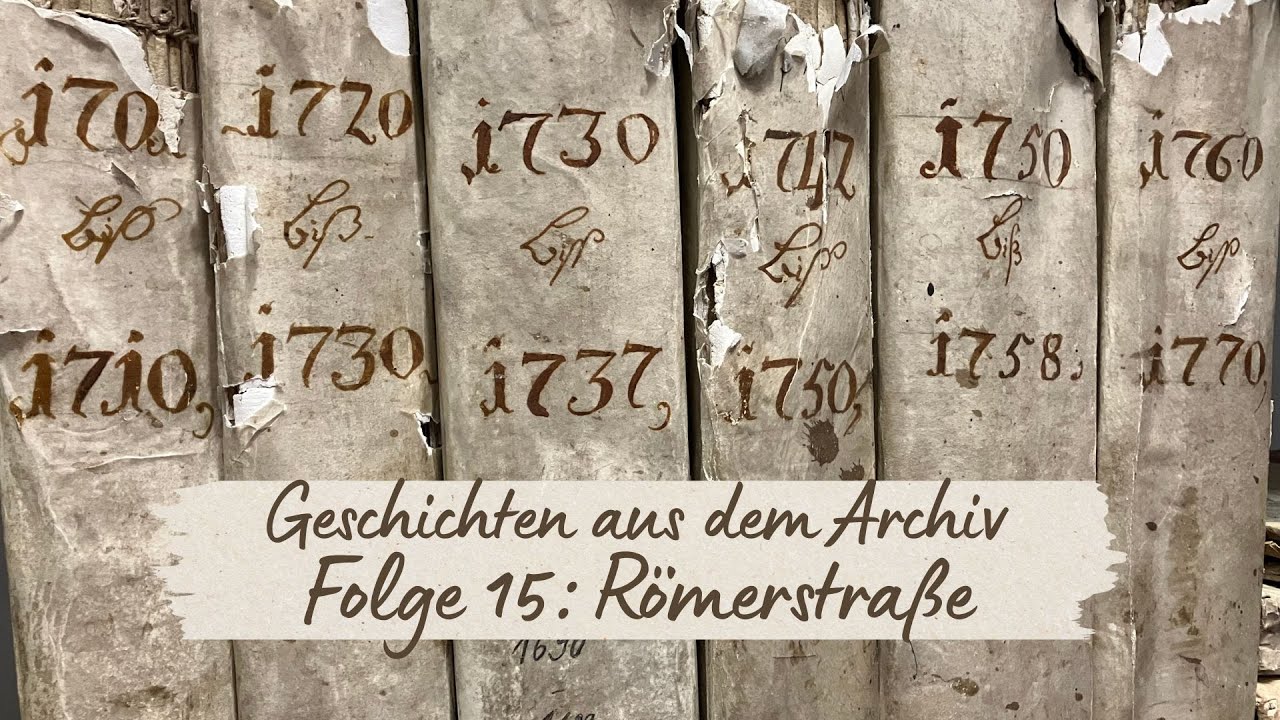 170
biß
1710,
1720
biß
1730
1730
biß
1737,
1742
biß
1750,
1750
biß
1758,
1760
biß
1770,
Geschichten aus dem Archiv
Folge 15: Römerstraße
1690